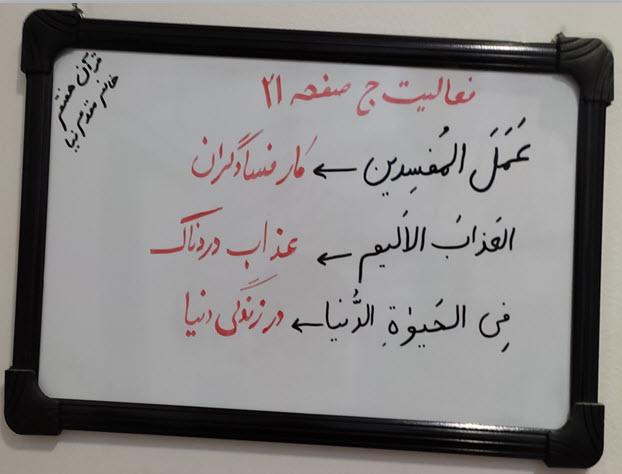 قرآن هفتم
خانم مقدسی نیا
فعالیت ج صفحه ۲۱
عَمَلَ المُفسِدین ← کار فسادگران
العَذابَ الاَلیم ← عذاب دردناک
فِی الحَیوٰةِ الدُّنیا ← در زندگی دنیا